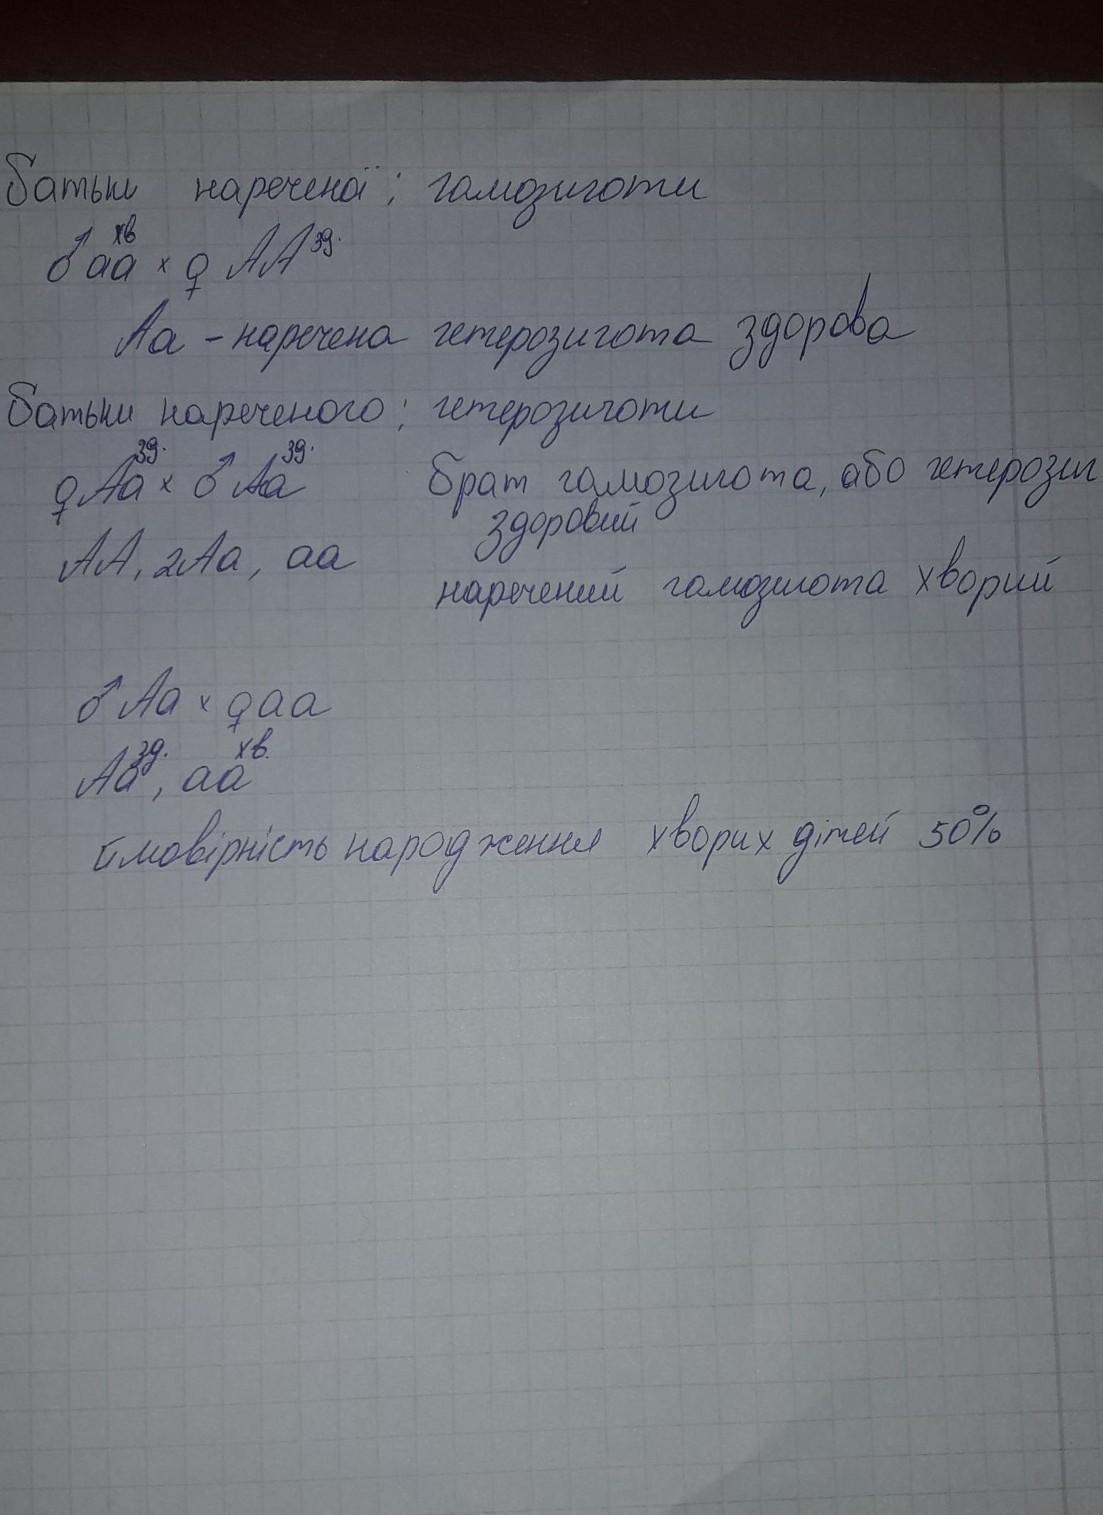 батьки нареченої; гамозиготи
♂ аа хв × ♀ АА зд.
Аа - наречена гетерозигота здорова
батьки нареченого; гетерозиготи
♀ Аа зд. × ♂ Аа зд. брат гамозигота, або гетерозиг
здоровий
АА, 2Аа, аа
наречений гамозигота хворий
♂ Аа × ♀ аа
Аа зд., аа хв.
ймовірність народження хворих дітей 50%